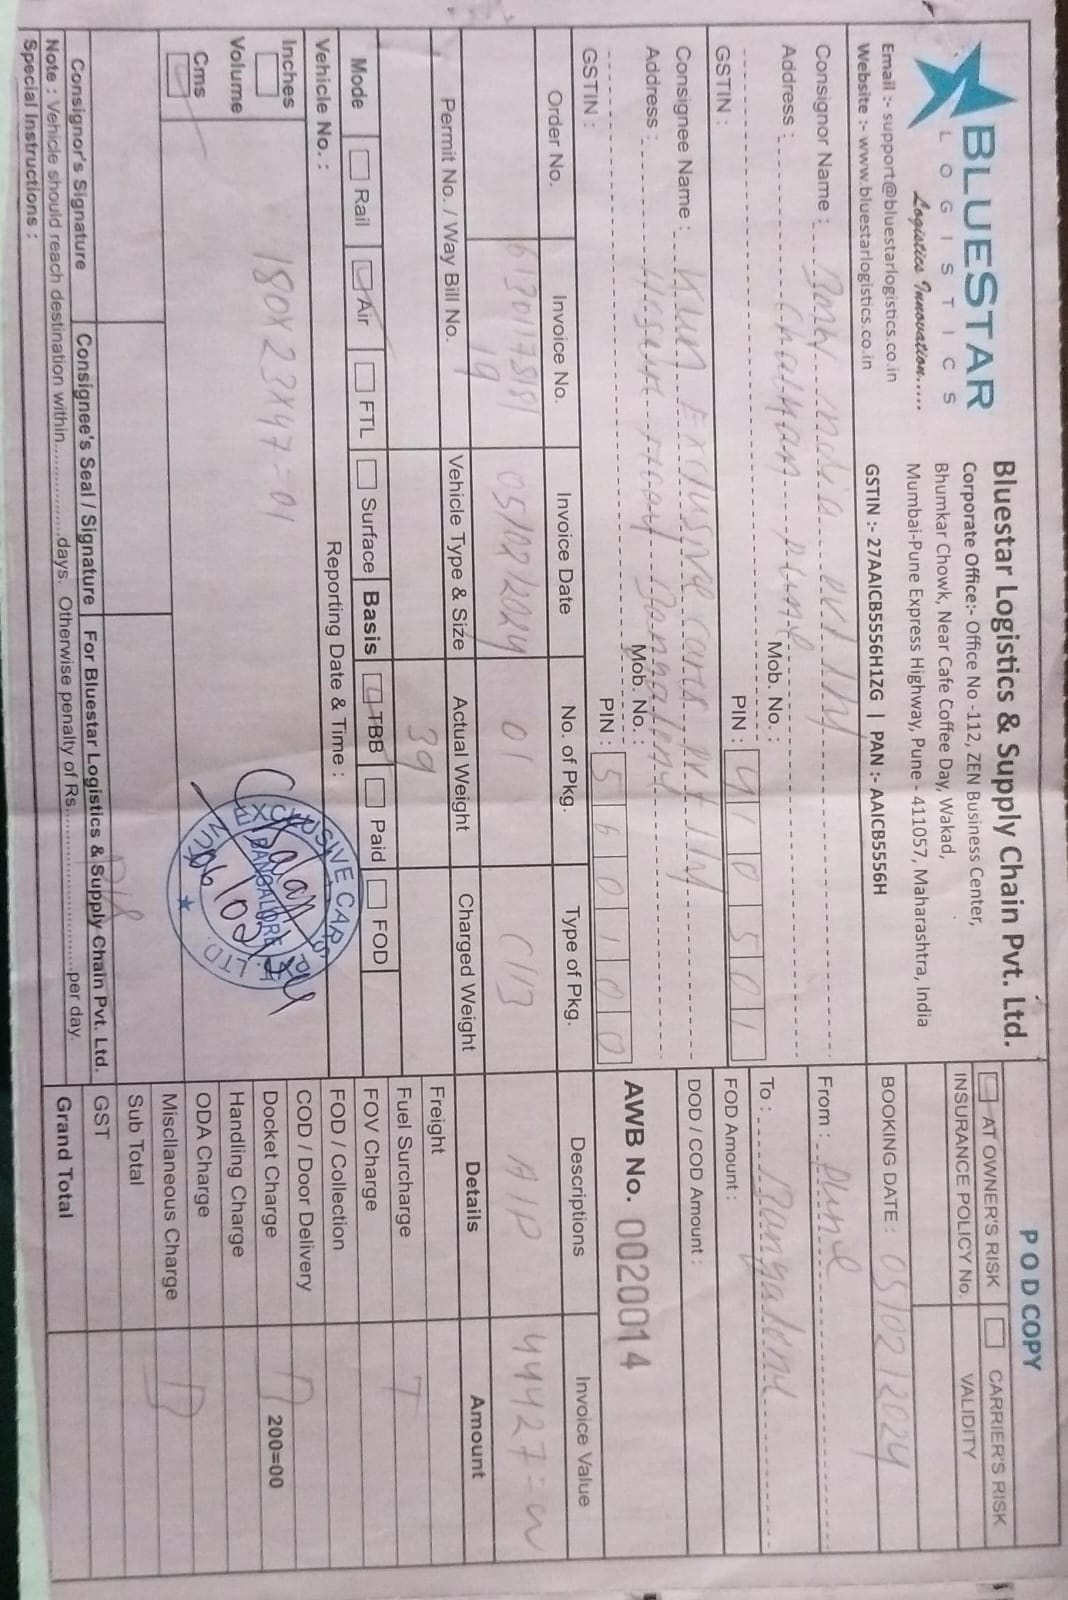 BLUESTAR
LOGISTICS
Logistics Innovation.....
Email :- support@bluestarlogistics.co.in
Website :- www.bluestarlogistics.co.in
Bluestar Logistics & Supply Chain Pvt. Ltd.
Corporate Office:- Office No -112, ZEN Business Center,
Bhumkar Chowk, Near Cafe Coffee Day, Wakad,
Mumbai-Pune Express Highway, Pune - 411057, Maharashtra, India
GSTIN :- 27AAICB5556H1ZG | PAN :- AAICB5556H
POD COPY
AT OWNER'S RISK CARRIER'S RISK
INSURANCE POLICY No. VALIDITY
BOOKING DATE : 05/02/2024
Consignor Name : india pvt
Address : Pune
Mob. No. :
PIN : 410501
GSTIN :
From : Pune
To : Bangalore
FOD Amount :
DOD / COD Amount :
Consignee Name : Kun Exclusive cars pvt
Address : Bangalore
Mob. No. :
PIN : 560100
GSTIN :
AWB No. 0020014
Order No. Invoice No. Invoice Date No. of Pkg. Type of Pkg. Descriptions Invoice Value
05/02/2024 01 AIP
19
Permit No. / Way Bill No. Vehicle Type & Size Actual Weight Charged Weight Details Amount
39
Mode Rail Air FTL Surface Basis TBB Paid FOD
Vehicle No. : Reporting Date & Time :
Inches
Volume
Cms
180x23x47=01
KUN EXCLUSIVE CARS PVT. LTD.
BANGALORE
06/02/24
Freight
Fuel Surcharge T
FOV Charge
FOD / Collection
COD / Door Delivery
Docket Charge 200=00
Handling Charge
ODA Charge
Miscllaneous Charge B
Sub Total
GST
Grand Total
Consignor's Signature Consignee's Seal / Signature For Bluestar Logistics & Supply Chain Pvt. Ltd.
Note : Vehicle should reach destination within..................days. Otherwise penalty of Rs..............................per day.
Special Instructions :